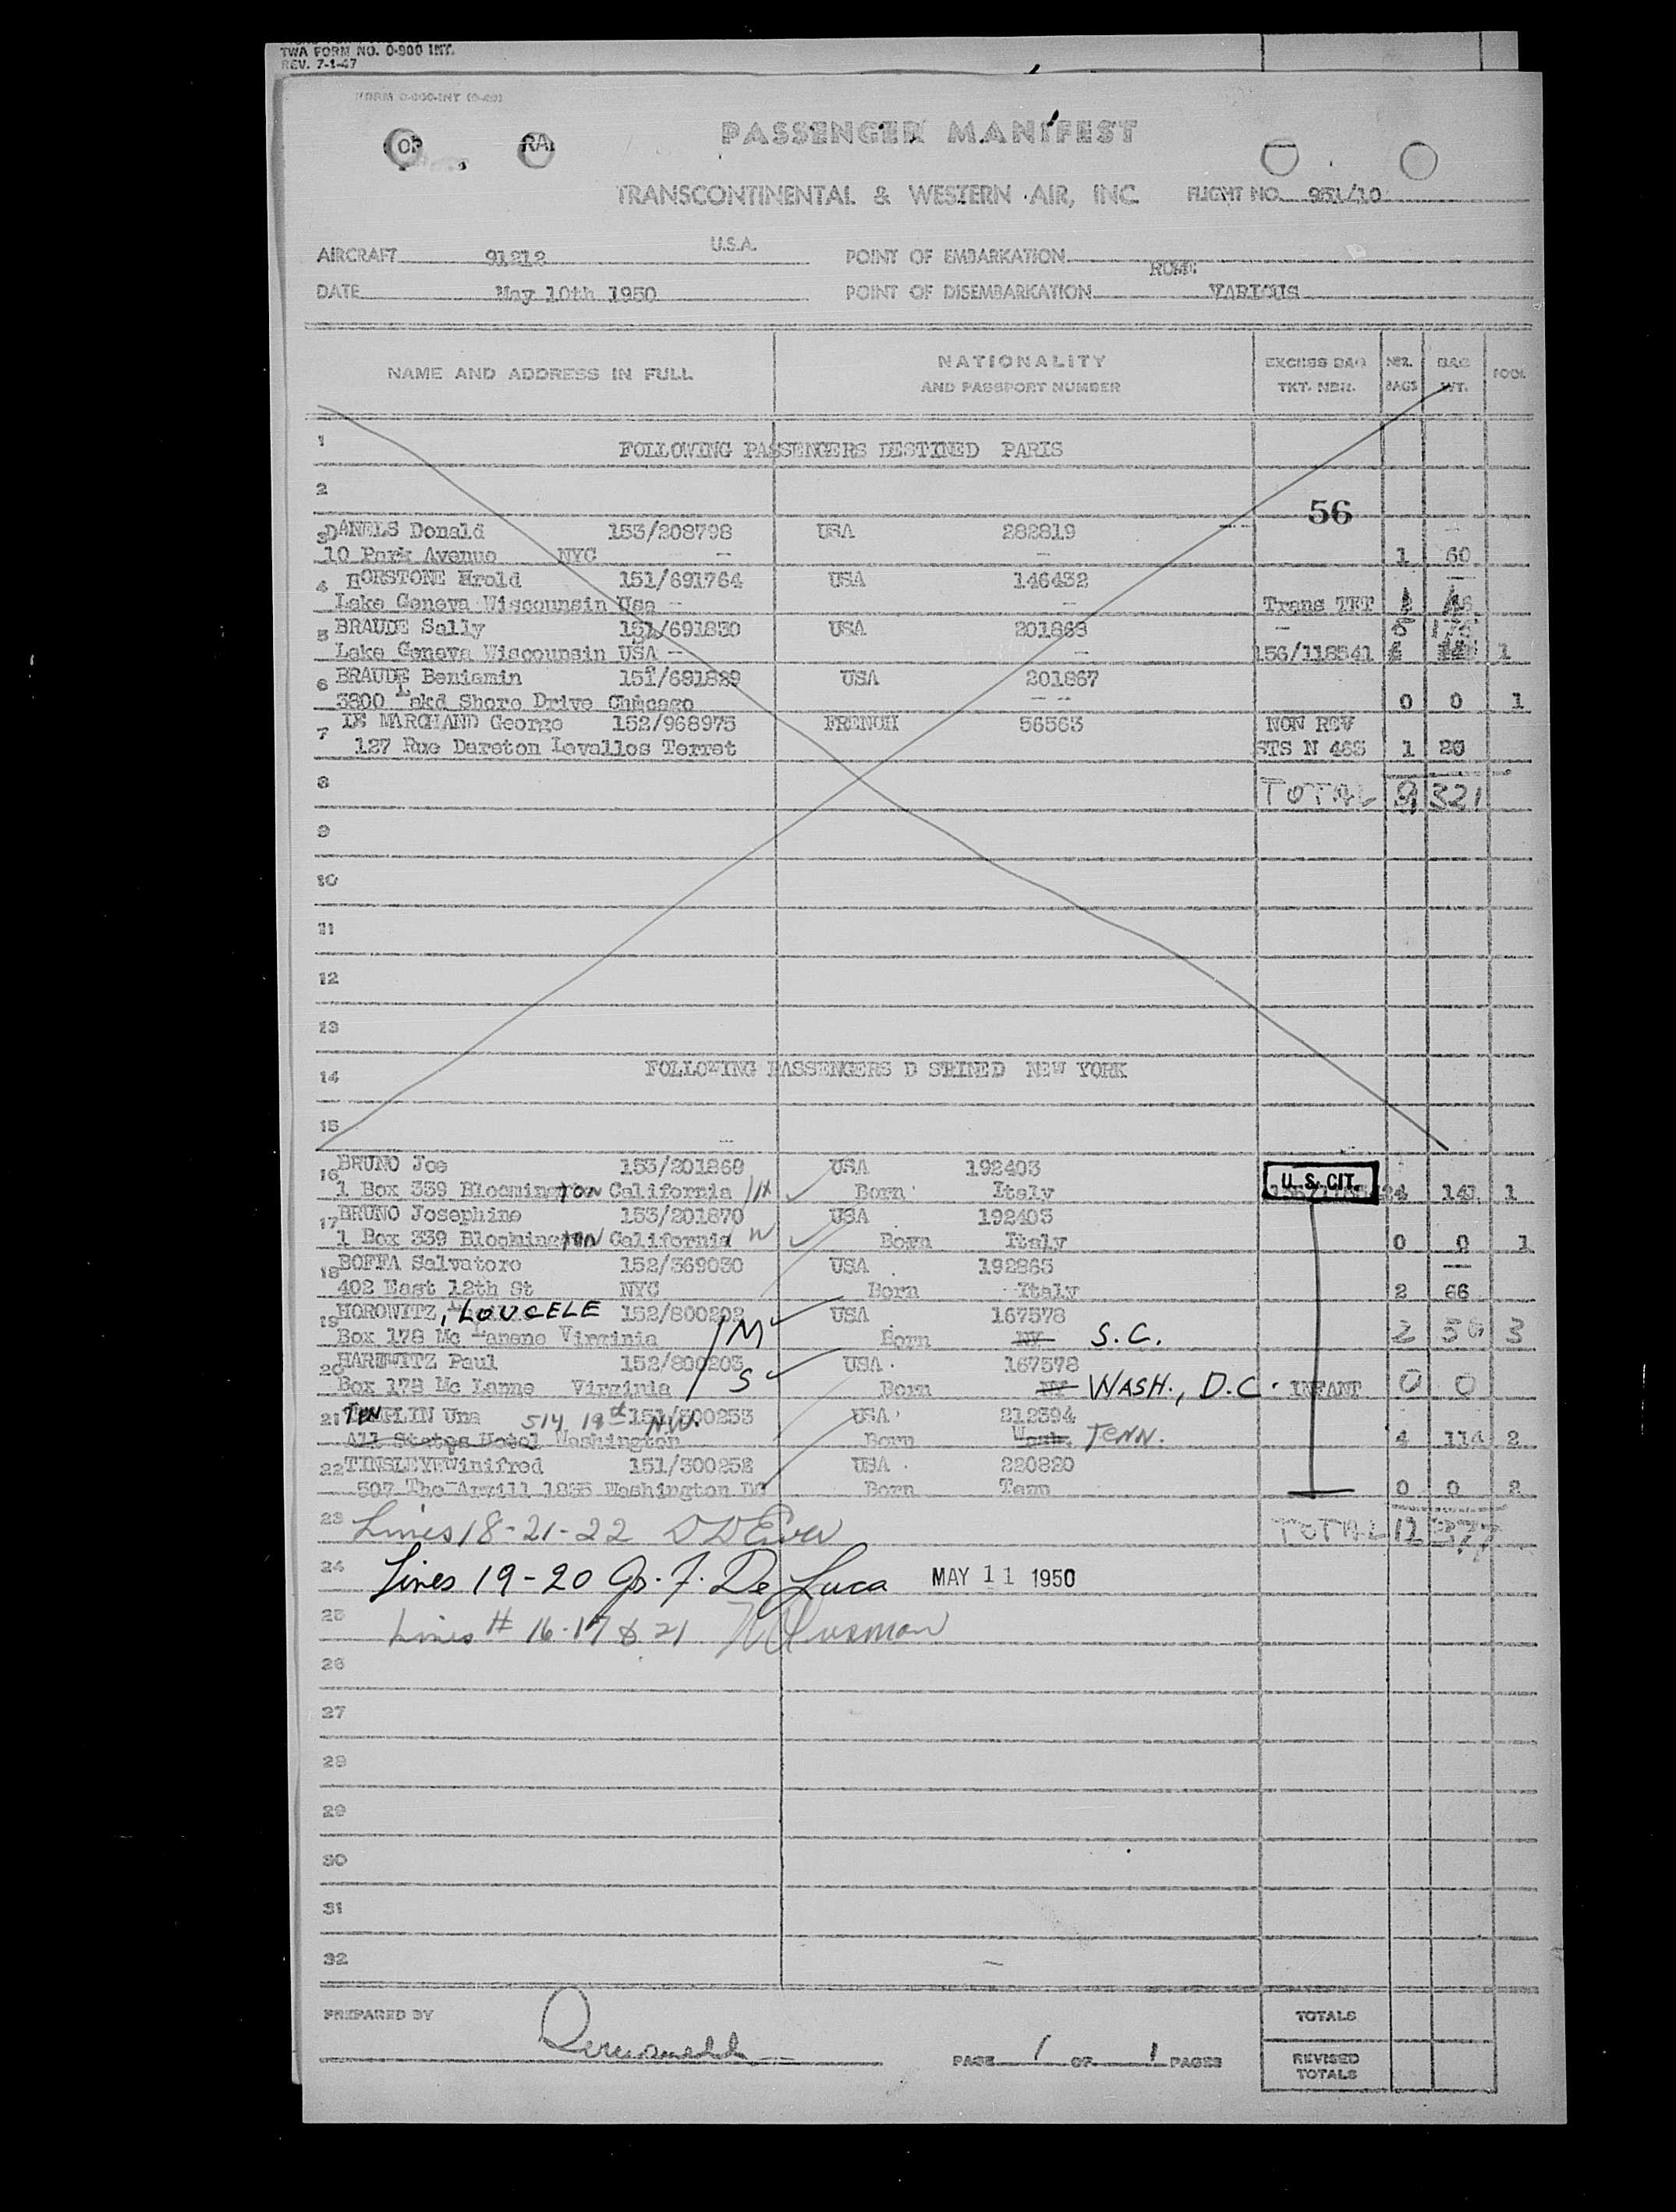 TWA FORM NO. 0-900 INT.
REV. 7-1-47
FORM 0-900-INT
PASSENGER MANIFEST
TRANSCONTINENTAL & WESTERN AIR, INC. FLIGHT NO. 951/10
AIRCRAFT 91212 U.S.A. POINT OF EMBARKATION ROME
DATE May 10th 1950 POINT OF DISEMBARKATION VARIOUS
NAME AND ADDRESS IN FULL NATIONALITY AND PASSPORT NUMBER EXCESS BAG TKT. NBR. NBR. BAGS BAG WT.
1 FOLLOWING PASSENGERS DESTINED PARIS
2
56
3 DANELS Donald 153/208798 USA 282819
10 Park Avenue NYC 1 60
4 BORSTONE Hrold 151/691764 USA 146432
Lake Geneva Wiscounsin Usa Trans TKT
5 BRAUDE Sally 151/691830 USA 201863
Lake Geneva Wiscounsin USA 156/118541 1
6 BRAUDE Beniamin 151/691829 USA 201867
3800 Lakd Shore Drive Chicago 0 0 1
7 LE MARCHAND George 152/968975 FRENCH 56563 NON REV
127 Rue Dareton Levallos Terret STS N 463 1 20
8 TOTAL 9 321
9
10
11
12
13
14 FOLLOWING PASSENGERS D STINED NEW YORK
15
16 BRUNO Joe 153/201869 USA 192403 U.S. CIT.
1 Box 339 Bloomington California Born Italy 4 141 1
17 BRUNO Josephine 153/201870 USA 192403
1 Box 339 Bloomington California W Born Italy 0 0 1
18 BOFFA Salvatore 152/369030 USA 192863
402 East 12th St NYC Born Italy 2 66
19 HOROWITZ, LOUCELE 152/800202 USA 167578
Box 178 Mc Lanene Virginia M Born NY S.C. 2 56 3
20 HAROWITZ Paul 152/800203 USA 167578
Box 178 Mc Lanne Virginia S Born NY WASH., D.C. INFANT 0 0
21 TEMPLIN Una 514 19th N.W. 151/300253 USA 212394
All States Hotel Washington Born Wash. TENN. 4 114 2
22 TINSLEY Winifred 151/300252 USA 220820
507 The Argill 1835 Washington DC Born Tenn 0 0 2
23 Lines 18-21-22 TOTAL 12 377
24 Lines 19-20 De Luca MAY 11 1950
25 Lines # 16-17 & 21
26
27
28
29
30
31
32
PREPARED BY PAGE 1 OF 1 PAGES
TOTALS
REVISED TOTALS